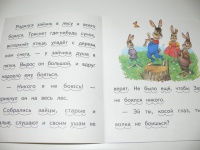 Родился зайчик в лесу и всего
боялся. Треснет где-нибудь сучок,
вспорхнёт птица, упадёт с дерева
ком снегу, — у зайчика душа в
пятки. Вырос он большой, и вдруг
надоело ему бояться.
— Никого я не боюсь! —
крикнул он на весь лес.
Собрались зайцы, старики и
малые, слушают и своим ушам не
верят. Не было ещё, чтобы заяц
не боялся никого.
— Эй ты, косой глаз, ты
волка не боишься?